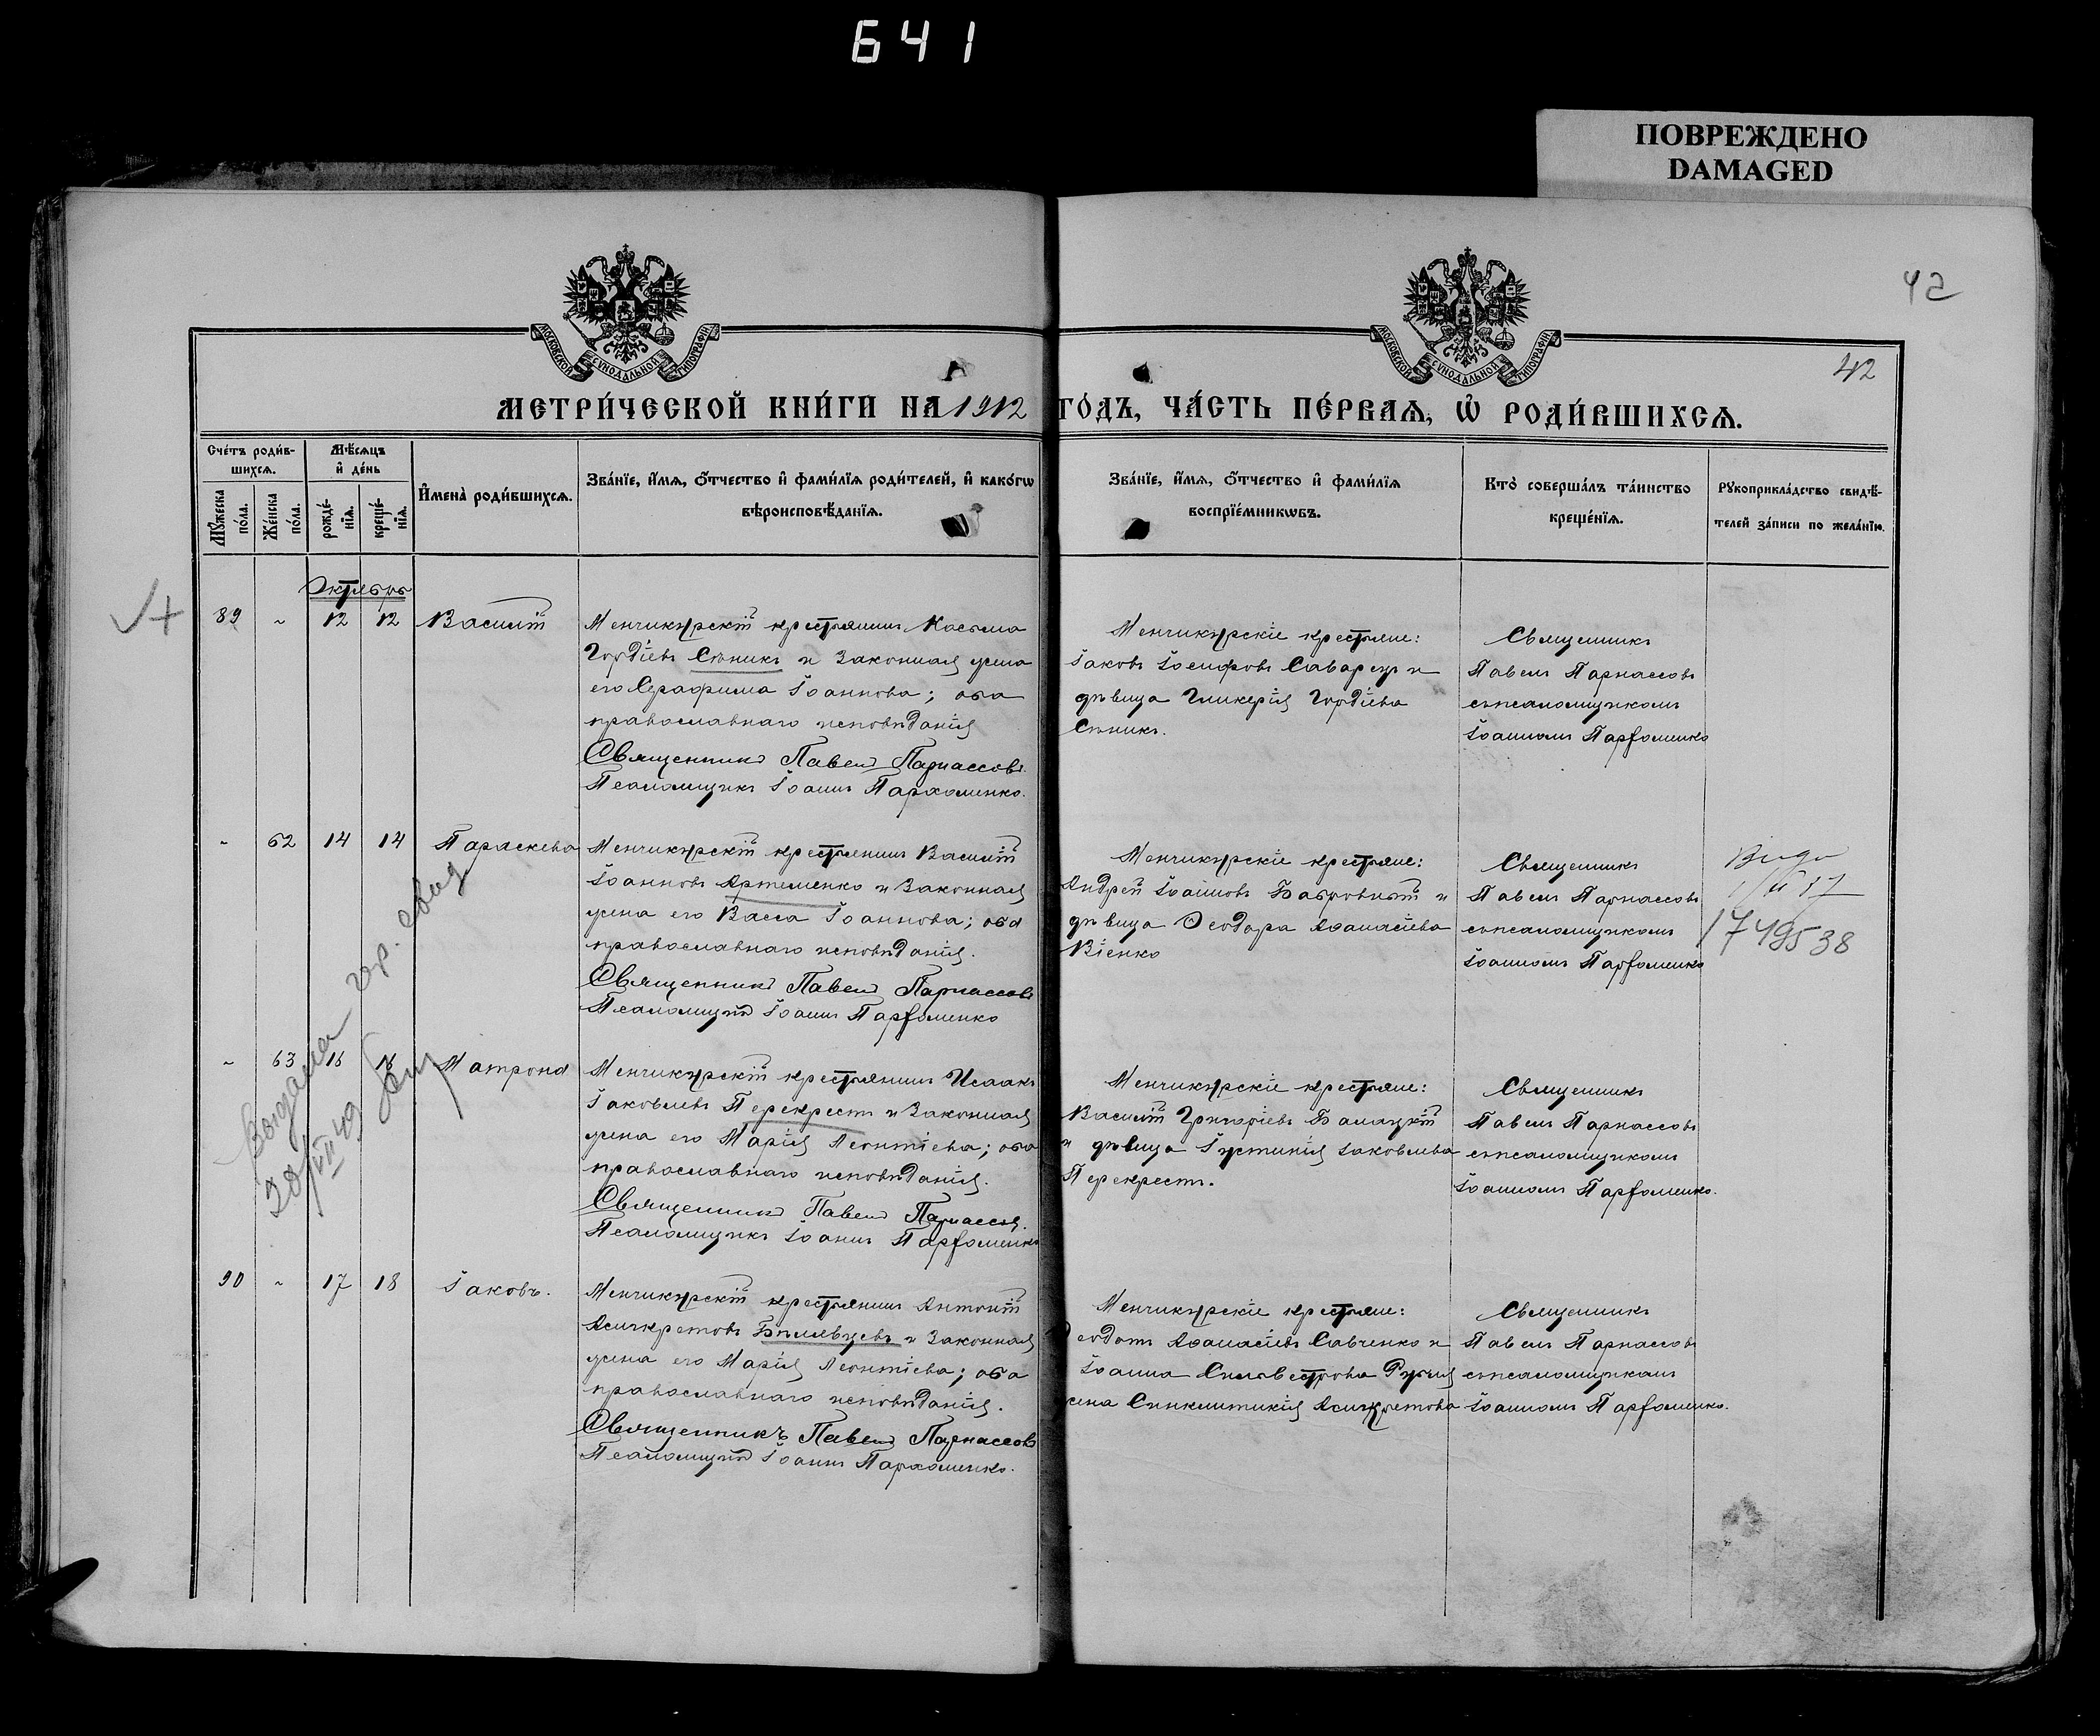 641
ПОВРЕЖДЕНО
DAMAGED
42
42
МОСКОВСКОЙ СѴНОДАЛЬНОЙ ТИПОГРАФІИ
МОСКОВСКОЙ СѴНОДАЛЬНОЙ ТИПОГРАФІИ
МЕТРИ́ЧЕСКОЙ КНИ́ГИ НА 1912 ГО́ДЪ, ЧА́СТЬ ПЕ́РВАѦ, Ѡ҆ РОДИ́ВШИХСѦ.
Сче́тъ роди́в-
шихсѧ.
Мѣ́сѧцъ
и҆ де́нь
Мꙋ́жеска
по́ла.
Же́нска
по́ла.
рожде́-
нїѧ.
креще́-
нїѧ.
И҆мена̀ роди́вшихсѧ.
Зва́нїе, и҆́мѧ, ѻ҆́тчество и҆ фами́лїѧ роди́телей, и҆ како́гѡ
вѣроисповѣ́данїѧ.
Зва́нїе, и҆́мѧ, ѻ҆́тчество и҆ фами́лїѧ
воспрїе́мникѡвъ.
Кто̀ соверша́лъ та́инство
креще́нїѧ.
Рꙋкоприкла́дство свидѣ́-
телей за́писи по жела́нїю.
Октябрь
89 ~ 12 12 Василій
Менчикурскій крестьянинъ Косьма
Гордіевъ Сѣникъ и законная жена
его Серафима Іоаннова; оба
православнаго исповѣданія
Священникъ Павелъ Парнассовъ.
Псаломщикъ Іоаннъ Пархоменко.
Менчикурскіе крестьяне:
Іаковъ Іосифовъ Саварецъ и
дѣвица Гликерія Гордіева
Сѣникъ.
Священникъ
Павелъ Парнассовъ
съ псаломщикомъ
Іоанномъ Парѳоменко
- 62 14 14 Параскева
Менчикурскій крестьянинъ Василій
Іоанновъ Артеменко и законная
жена его Васса Іоаннова; оба
православнаго исповѣданія.
Священникъ Павелъ Парнассовъ
Псаломщикъ Іоаннъ Парѳоменко
Менчикурскіе крестьяне:
Андрей Іоанновъ Бабровный и
дѣвица Ѳеодора Аѳанасіева
Віенко
Священникъ
Павелъ Парнассовъ
съ псаломщикомъ
Іоанномъ Парѳоменко
1749538
Выдана гор. свид
20/VII 49
~ 63 16 16 Матрона
Менчикурскій крестьянинъ Исаакъ
Іаковлевъ Перекрестъ и законная
жена его Марія Леонтіева; оба
православнаго исповѣданія.
Священникъ Павелъ Парнассов.
Псаломщикъ Іоаннъ Парѳоменко
Менчикурскіе крестьяне:
Василій Григоріевъ Балацкій
и дѣвица Іустинія Іаковлева
Перекрестъ.
Священникъ
Павелъ Парнассовъ
съ псаломщикомъ
Іоанномъ Парѳоменко.
90 ~ 17 18 Іаковъ.
Менчикурскій крестьянинъ Антоній
Асигкретовъ Билявцевъ и законная
жена его Марія Леонтіева; оба
православнаго исповѣданія.
Священникъ Павелъ Парнассовъ
Псаломщикъ Іоаннъ Пархоменко.
Менчикурскіе крестьяне:
Ѳеодотъ Аѳанасіевъ Савченко и
Іоанна Сильвестрова
жена Синклитикія Асигкретова
Священникъ
Павелъ Парнассовъ
съ псаломщикомъ
Іоанномъ Парѳоменко.